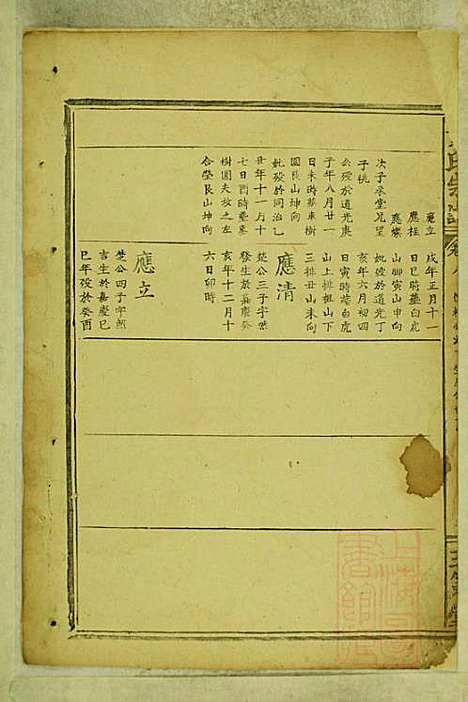 應立
應柱
應燦
次子承堂兄望
子桃
公殁於道光庚
子年八月廿一
日未時葬東樹
園艮山坤向
妣殁於同治乙
丑年十一月十
七日酉時葬東
樹園夫坟之左
合塋艮山坤向
戌年正月十一
日巳時葬白虎
山脚寅山申向
妣殁於道光丁
亥年六月初四
日寅時葬白虎
山上排祖山下
三排丑山未向
應清
楚公三子字世
發生於嘉慶癸
亥年十二月十
六日卯時
應立
楚公四子字朝
吉生於嘉慶己
巳年殁於癸酉
氏宗譜
卷八
上海圖書館藏